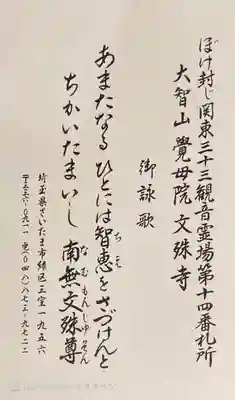 ぼけ封じ関東三十三観音霊場第十四番札所
大智山 覺母院 文殊寺
御詠歌
あまたなる ひとには智恵をさづけんと
ちえ
ちかいたまいし 南無文殊尊
なむもんじゅそん
埼玉県さいたま市緑区三室一九五六
〒三三六-〇九一一 電(〇四八)八七三-九七二二